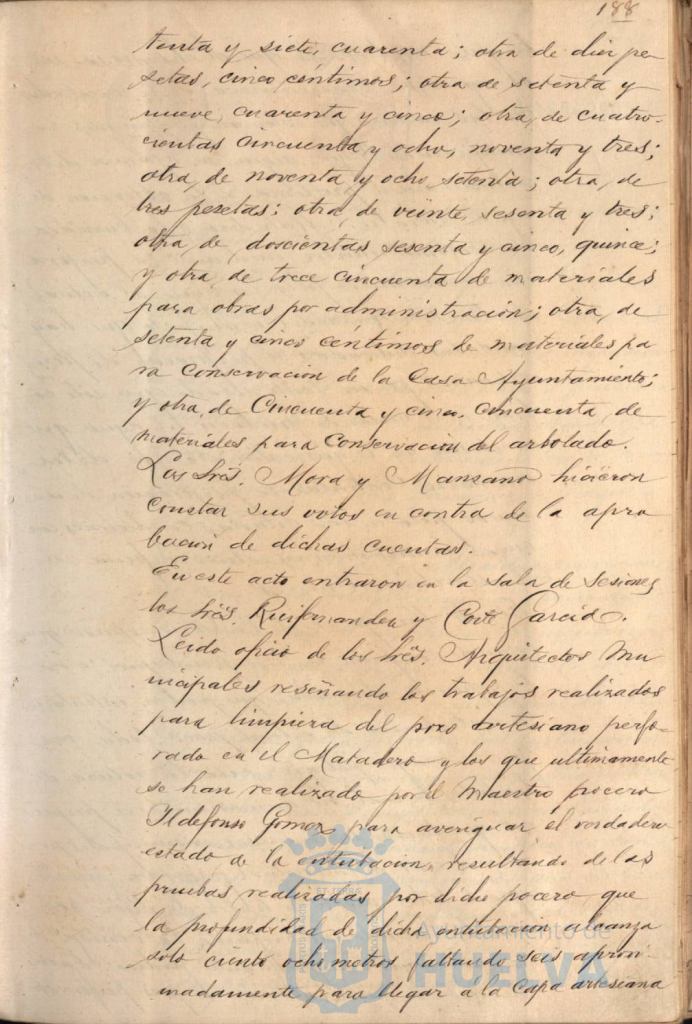 188
tenta y siete, cuarenta; otra de diez pe-
setas, cinco céntimos; otra de setenta y
nueve, cuarenta y cinco; otra, de cuatro-
cientas cincuenta y ocho, noventa y tres;
otra, de noventa y ocho, setenta; otra, de
tres pesetas; otra, de veinte, sesenta y tres;
otra, de, doscientas sesenta y cinco, quince;
y otra, de trece cincuenta de materiales
para obras por administración; otra, de
setenta y cinco céntimos de materiales pa
ra conservacion de la Casa Ayuntamiento;
y otra, de Cincuenta y cinco, cincuenta, de
materiales para conservacion del arbolado.
Los Srës. Mora y Manzano hicieron
constar sus votos en contra de la apro
bacion de dichas cuentas.
En este acto entraron en la sala de sesiones
los Srës. Ruifernandez y Corte Garcia.
Leido oficio de los Srës. Arquitectos Mu
nicipales reseñando los trabajos realizados
para limpieza del pozo artesiano perfo-
rado en el Matadero y los que ultimamente
se han realizado por el Maestro pocero
Ildefonso Gomez para averiguar el verdadero
estado de la entubacion, resultando de las
pruebas realizadas por dicho pocero, que
la profundidad de dicha entubacion alcanza
solo ciento ocho metros faltando seis aproxi
madamente para llegar a la capa artesiana
Ayuntamiento de
HUELVA